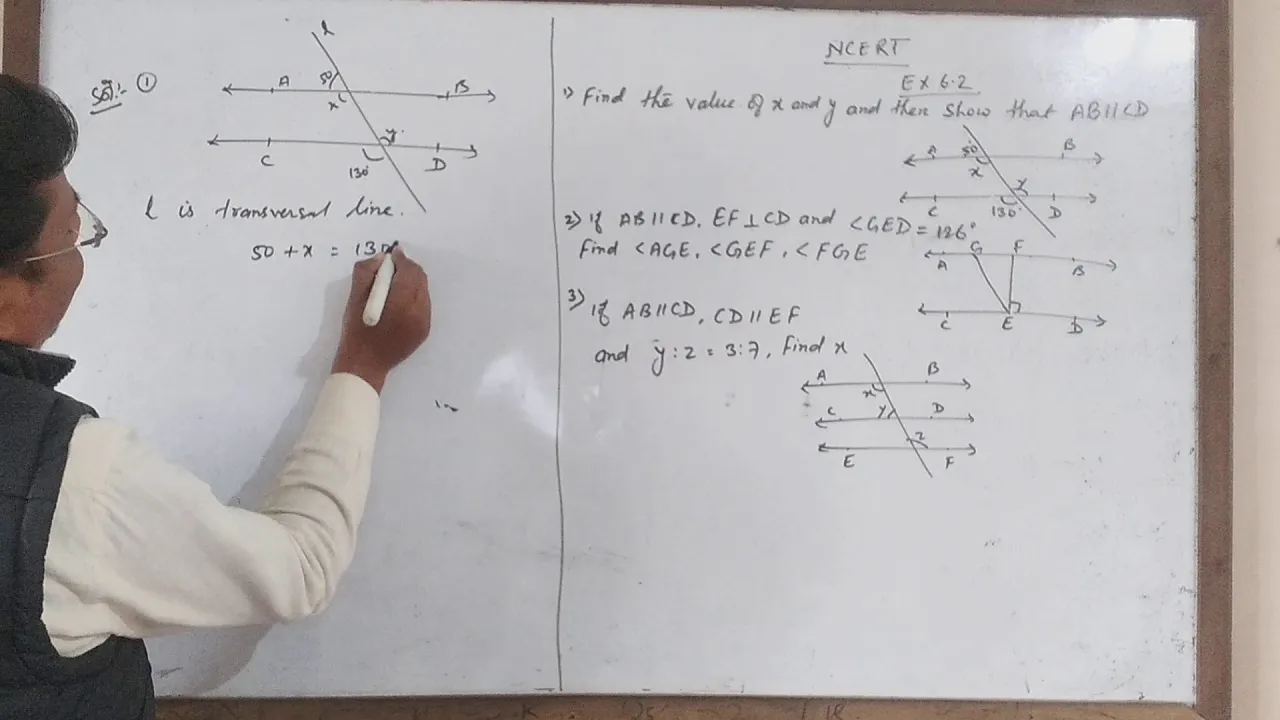 Sol:- ①
l
A
50
x
B
y
C
130°
D
l is transversal line.
50 + x = 130
NCERT
EX 6.2
1) Find the value of x and y and then show that AB || CD
A
50
B
x
y
C
130°
D
2) if AB || CD, EF ⊥ CD and <GED = 126°
Find <AGE, <GEF, <FGE
G
F
A
B
C
E
D
3) if AB || CD, CD || EF
and y : z = 3 : 7, Find x
A
B
x
C
y
D
z
E
F